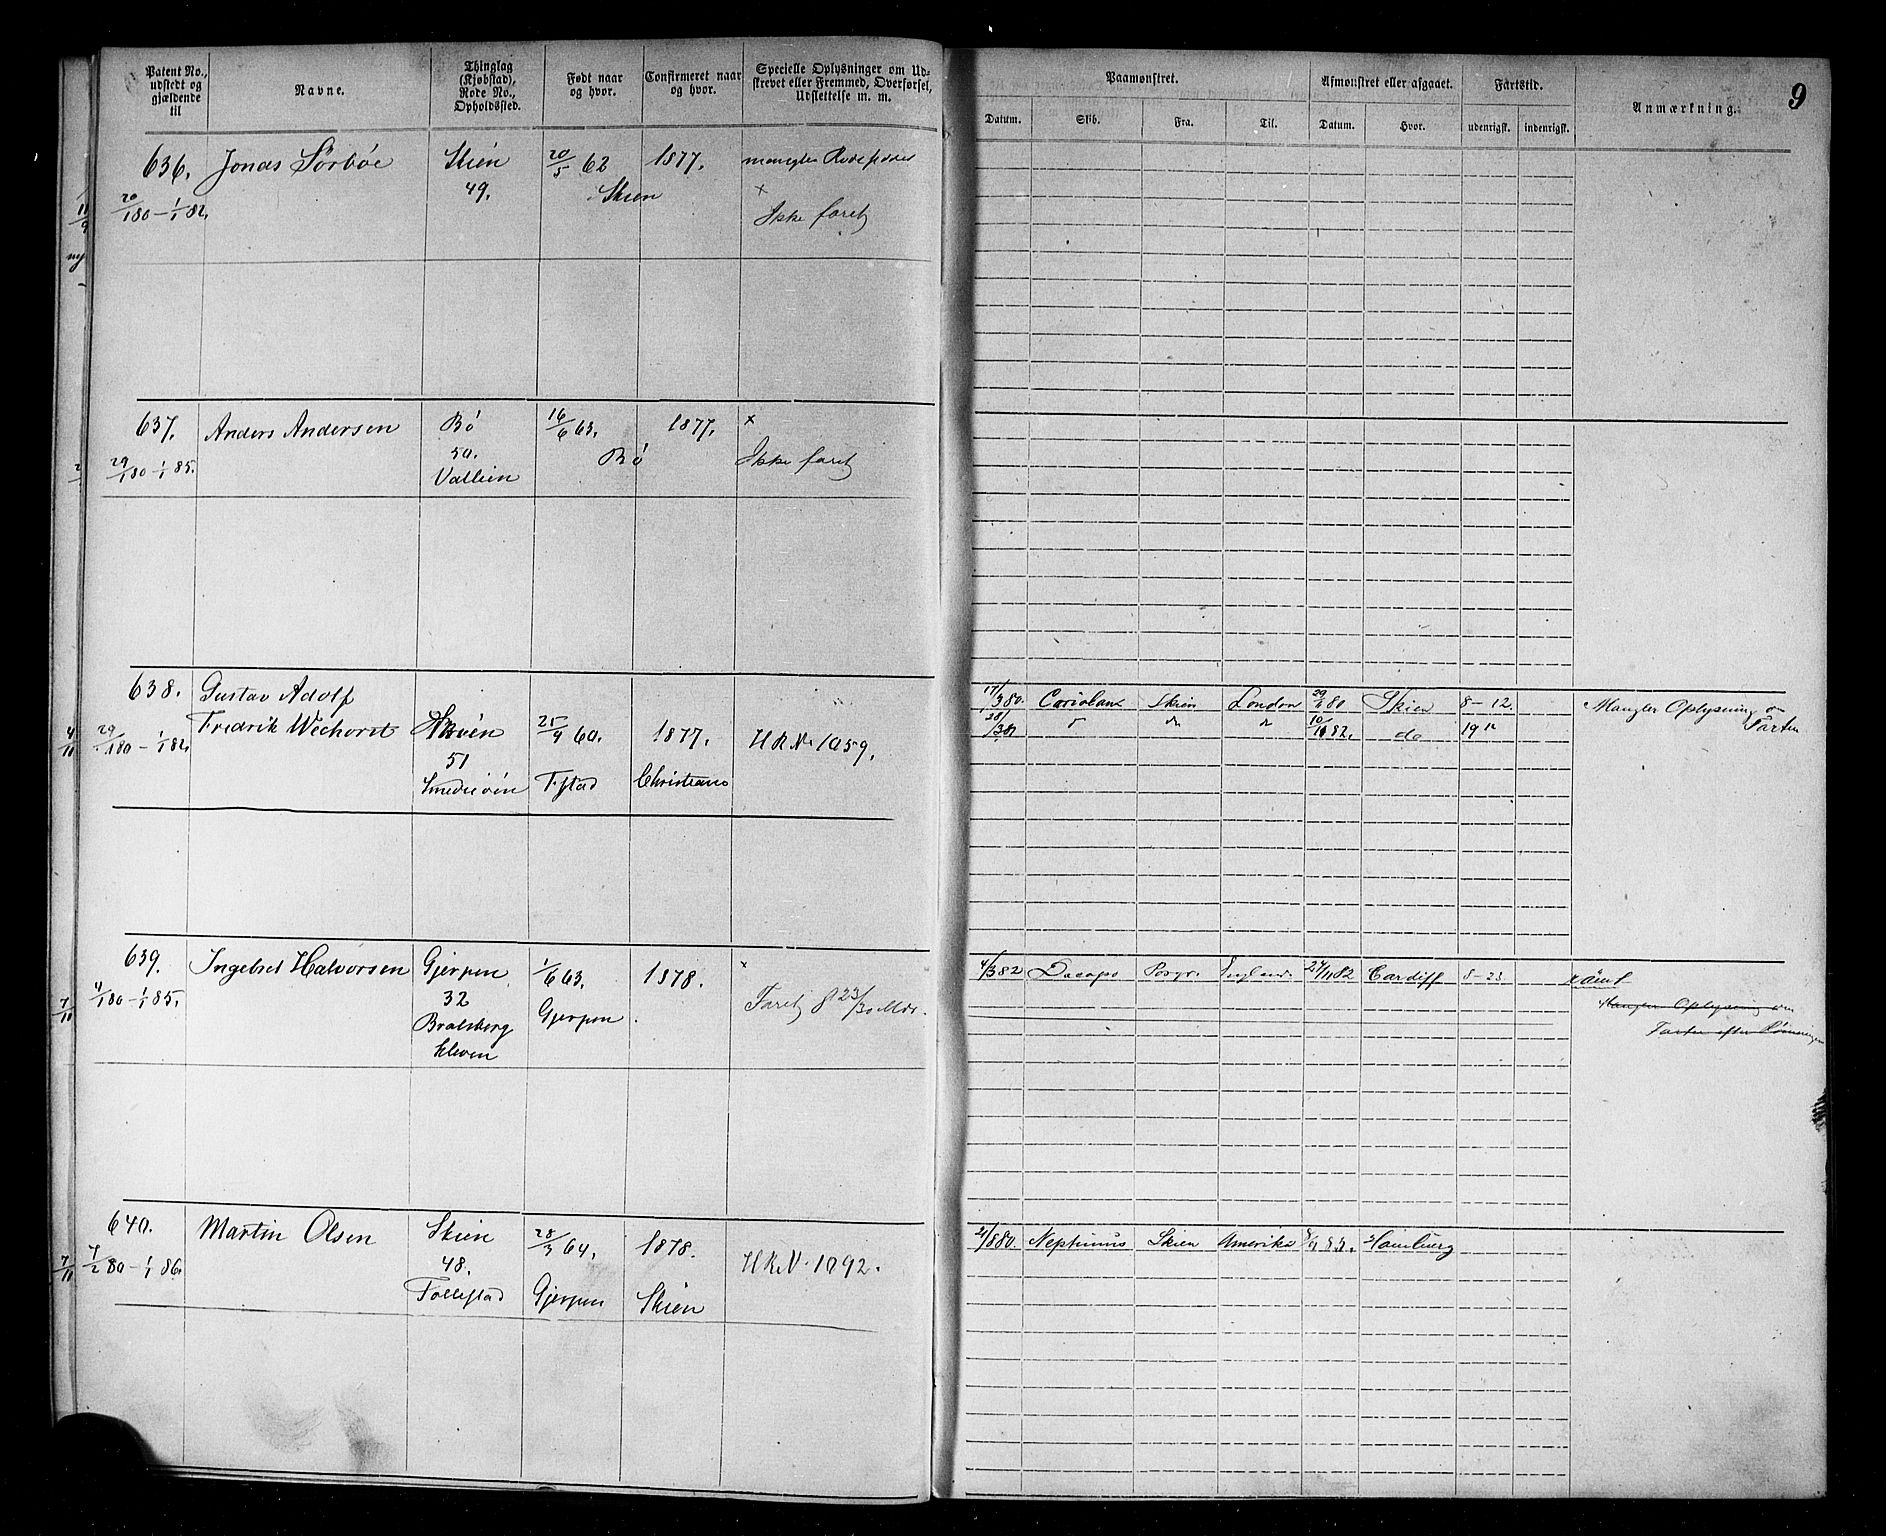 Patent No., udstedt og gjældende til
Navne.
Thinglag (Kjøbstad), Rode No., Opholdssted.
Født naar og hvor.
Confirmeret naar og hvor.
Specielle Oplysninger om Udskrevet eller Fremmed, Overførsel, Udslettelse m. m.
Paamønstret.
Afmønstret eller afgaaet.
Fartstid.
Anmærkning.
9
Datum.
Skib.
Fra.
Til.
Datum.
Hvor.
udenrigsk.
indenrigsk.
636. Jonas Sörböe Skien 20/5 62 1877. mangler
49. Skien ×
20/1 80 – 1/1 82. Ikke faret
11/9
ny
637. Anders Andersen Bö 16/6 63. 1877. ×
29/1 80 – 1/1 85. 50. Bö Ikke faret
Vallein
638. Gustav Adolf
Fredrik Wechorst Skien 25/9 60. 1877. H R No 1059.
29/1 80 – 1/1 82. 51
F.stad Christiania
17/3 80. Coriolanus Skien London 29/ 80 Skien 8 – 12. Mangler Oplysning om
10/ 82. do 19 Farten
4/11
639. Ingebret Halvorsen Gjerpen 1/6 63. 1878. ×
80 – 1/1 85. 32 Gjerpen. Faret 8 23/30 Mdr.
Bratsberg
kleven
4/3 82 Dacapo Porsgr. England. 27/11 82 Cardiff 8 – 23.
Mangler Oplysning om
Farten efter Rømningen
7/11
640. Martin Olsen Skien 28/3 64. 1878. H R No 1092.
7/2 80 – 1/1 86. 48.
Follestad Gjerpen Skien
80. Neptunus Skien Amerika Hamburg
7/11